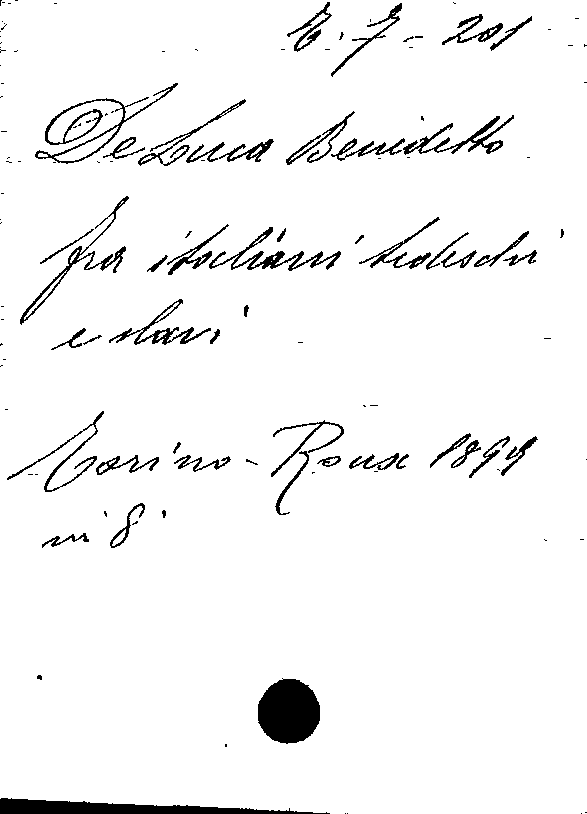 E. 7 - 201
De Luca Benedetto
fra italiani tedeschi
e slavi
Torino - Roux 1899
in 8°